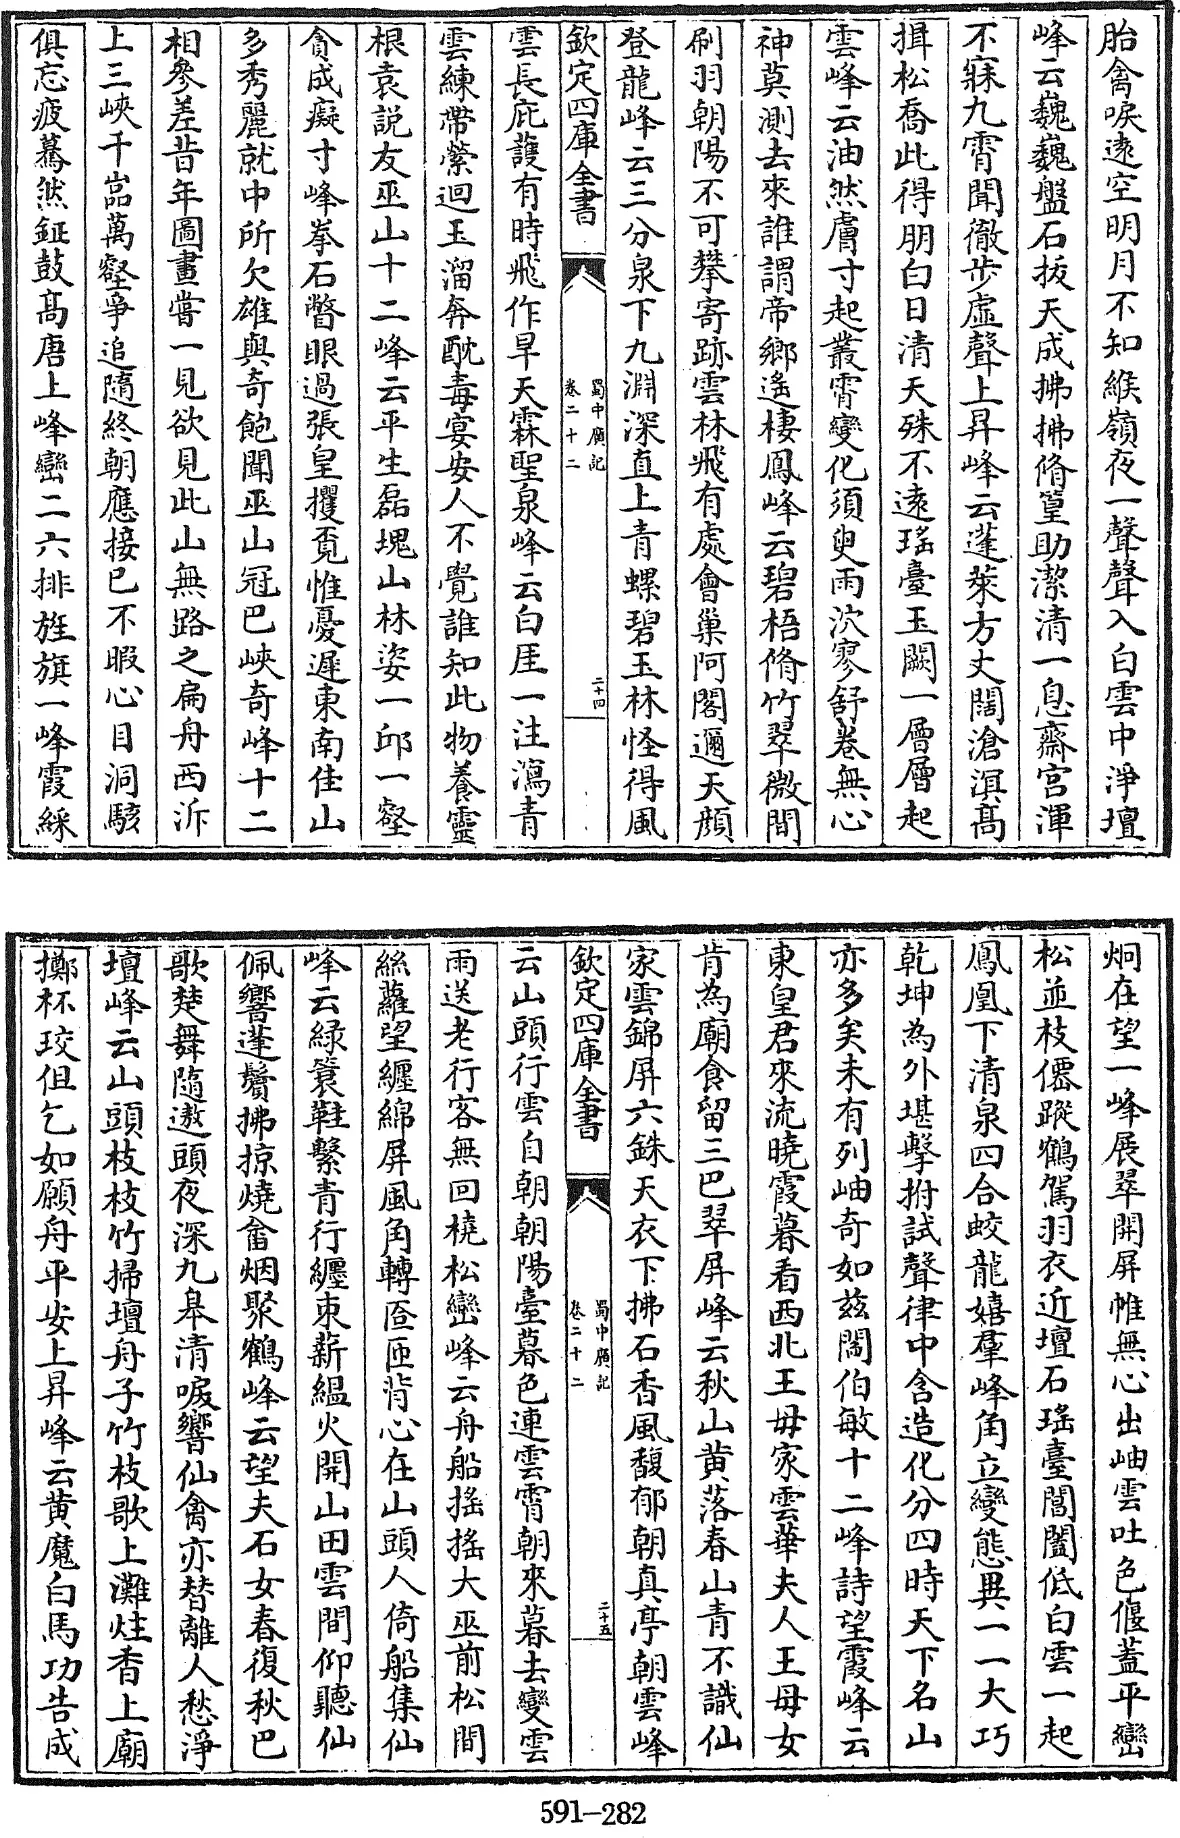 胎禽唳逺空明月不知緱嶺夜一聲聲入白雲中淨壇
峰云巍巍盤石㧞天成拂拂脩篁助潔清一息齋宫渾
不寐九霄聞徹步虛聲上昇峰云蓬萊方丈闊滄溟髙
揖松喬此得朋白日清天殊不逺瑶臺玉闕一層層起
雲峰云油然膚寸起叢霄變化須臾雨泬寥舒卷無心
神莫測去來誰謂帝鄉遙棲鳳峰云碧梧脩竹翠微間
刷羽朝陽不可攀寄跡雲林飛有處會巢阿閣邇天顔
登龍峰云三分泉下九淵深直上青螺碧玉林怪得風
欽定四庫全書
蜀中廣記
卷二十二
二十四
雲長庇䕶有時飛作旱天霖聖泉峰云白厓一注瀉青
雲練帶縈迴玉溜奔酖毒宴安人不覺誰知此物養靈
根袁説友巫山十二峰云平生磊塊山林姿一邱一壑
貪成癡寸峰拳石瞥眼過張皇攫覔惟憂遲東南佳山
多秀麗就中所欠雄與奇飽聞巫山冠巴峽奇峰十二
相參差昔年圖畫嘗一見欲見此山無路之扁舟西泝
上三峽千嵓萬壑爭追隨終朝應接已不暇心目洞駭
俱忘疲驀然鉦鼓髙唐上峰巒二六排旌旗一峰霞綵
炯在望一峰展翠開屏帷無心出岫雲吐色偃蓋平巒
松並枝僊蹤鶴駕羽衣近壇石瑤臺閶闔低白雲一起
鳳凰下清泉四合蛟龍嬉羣峰角立變態異一一大巧
乾坤為外堪擊拊試聲律中含造化分四時天下名山
亦多矣未有列岫奇如兹閻伯敏十二峰詩望霞峰云
東皇君來流曉霞暮看西北王母家雲華夫人王母女
肯為廟食留三巴翠屏峰云秋山黄落春山青不識仙
家雲錦屏六銖天衣下拂石香風馥郁朝真亭朝雲峰
欽定四庫全書
蜀中廣記
卷二十二
二十五
云山頭行雲自朝朝陽臺暮色連雲霄朝來暮去變雲
雨送老行客無回橈松巒峰云舟船搖搖大巫前松間
絲蘿望纒綿屏風角轉匼匝背心在山頭人倚船集仙
峰云緑蓑鞋繫青行纒束薪緼火開山田雲間仰聽仙
佩響蓬鬢拂掠燒畬烟聚鶴峰云望夫石女春復秋巴
歌楚舞隨遨頭夜深九皋清唳響仙禽亦替離人愁淨
壇峰云山頭枝枝竹掃壇舟子竹枝歌上灘炷香上廟
擲杯珓但乞如願舟平安上昇峰云黄魔白馬功告成
591-282